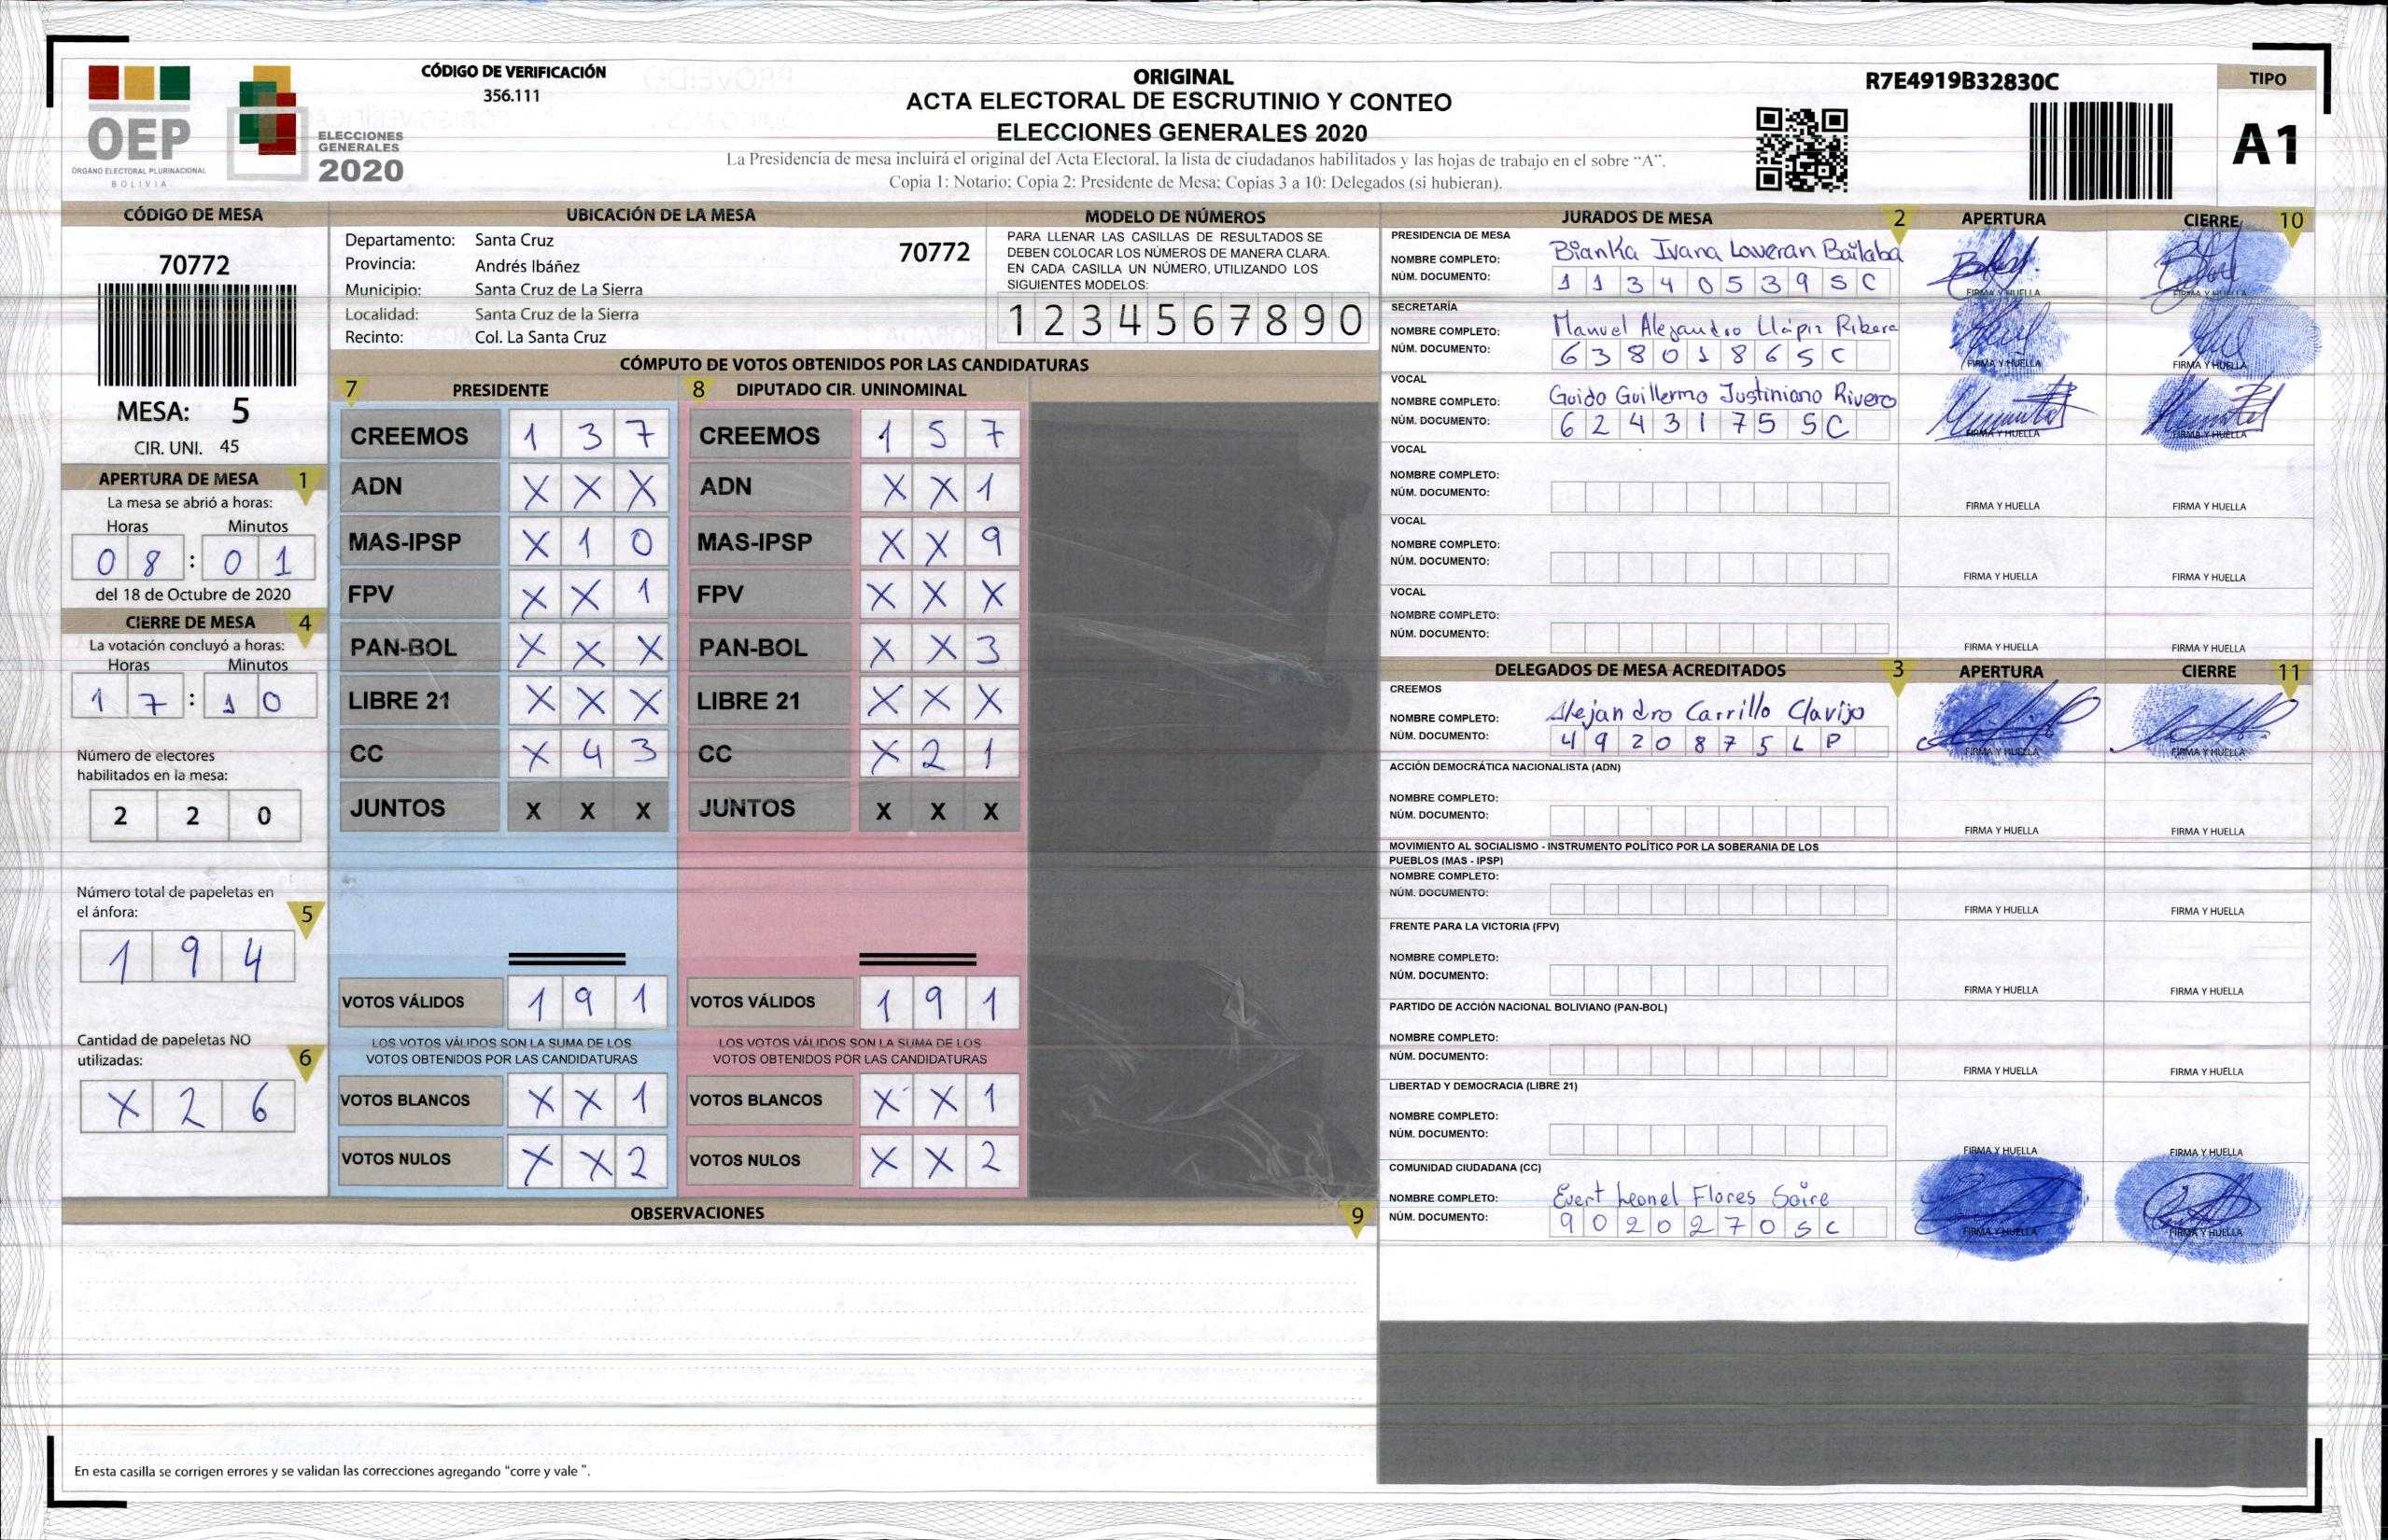 OEP
ÓRGANO ELECTORAL PLURINACIONAL
BOLIVIA
ELECCIONES
GENERALES
2020
CÓDIGO DE VERIFICACIÓN
356.111
ORIGINAL
ACTA ELECTORAL DE ESCRUTINIO Y CONTEO
ELECCIONES GENERALES 2020
La Presidencia de mesa incluirá el original del Acta Electoral, la lista de ciudadanos habilitados y las hojas de trabajo en el sobre “A”.
Copia 1: Notario; Copia 2: Presidente de Mesa; Copias 3 a 10: Delegados (si hubieran).
R7E4919B32830C
TIPO
A1
CÓDIGO DE MESA
70772
MESA: 5
CIR. UNI. 45
APERTURA DE MESA 1
La mesa se abrió a horas:
Horas Minutos
0 8 : 0 1
del 18 de Octubre de 2020
CIERRE DE MESA 4
La votación concluyó a horas:
Horas Minutos
1 7 : 1 0
Número de electores
habilitados en la mesa:
2 2 0
Número total de papeletas en
el ánfora: 5
1 9 4
Cantidad de papeletas NO
utilizadas: 6
X 2 6
UBICACIÓN DE LA MESA
Departamento: Santa Cruz 70772
Provincia: Andrés Ibáñez
Municipio: Santa Cruz de La Sierra
Localidad: Santa Cruz de la Sierra
Recinto: Col. La Santa Cruz
MODELO DE NÚMEROS
PARA LLENAR LAS CASILLAS DE RESULTADOS SE
DEBEN COLOCAR LOS NÚMEROS DE MANERA CLARA.
EN CADA CASILLA UN NÚMERO, UTILIZANDO LOS
SIGUIENTES MODELOS:
1 2 3 4 5 6 7 8 9 0
CÓMPUTO DE VOTOS OBTENIDOS POR LAS CANDIDATURAS
7 PRESIDENTE 8 DIPUTADO CIR. UNINOMINAL
CREEMOS 1 3 7 CREEMOS 1 5 7
ADN X X X ADN X X 1
MAS-IPSP X 1 0 MAS-IPSP X X 9
FPV X X 1 FPV X X X
PAN-BOL X X X PAN-BOL X X 3
LIBRE 21 X X X LIBRE 21 X X X
CC X 4 3 CC X 2 1
JUNTOS X X X JUNTOS X X X
VOTOS VÁLIDOS 1 9 1 VOTOS VÁLIDOS 1 9 1
LOS VOTOS VÁLIDOS SON LA SUMA DE LOS LOS VOTOS VÁLIDOS SON LA SUMA DE LOS
VOTOS OBTENIDOS POR LAS CANDIDATURAS VOTOS OBTENIDOS POR LAS CANDIDATURAS
VOTOS BLANCOS X X 1 VOTOS BLANCOS X X 1
VOTOS NULOS X X 2 VOTOS NULOS X X 2
OBSERVACIONES 9
En esta casilla se corrigen errores y se validan las correcciones agregando “corre y vale ”.
JURADOS DE MESA 2 APERTURA CIERRE 10
PRESIDENCIA DE MESA
NOMBRE COMPLETO: Bianka Ivana Laveran Bailaba
NÚM. DOCUMENTO: 1 1 3 4 0 5 3 9 S C
FIRMA Y HUELLA FIRMA Y HUELLA
SECRETARÍA
NOMBRE COMPLETO: Manuel Alejandro Llápiz Ribera
NÚM. DOCUMENTO: 6 3 8 0 1 8 6 S C
FIRMA Y HUELLA FIRMA Y HUELLA
VOCAL
NOMBRE COMPLETO: Guido Guillermo Justiniano Rivero
NÚM. DOCUMENTO: 6 2 4 3 1 7 5 S C
FIRMA Y HUELLA FIRMA Y HUELLA
VOCAL
NOMBRE COMPLETO:
NÚM. DOCUMENTO:
FIRMA Y HUELLA FIRMA Y HUELLA
VOCAL
NOMBRE COMPLETO:
NÚM. DOCUMENTO:
FIRMA Y HUELLA FIRMA Y HUELLA
VOCAL
NOMBRE COMPLETO:
NÚM. DOCUMENTO:
FIRMA Y HUELLA FIRMA Y HUELLA
DELEGADOS DE MESA ACREDITADOS 3 APERTURA CIERRE 11
CREEMOS
NOMBRE COMPLETO: Alejandro Carrillo Clavijo
NÚM. DOCUMENTO: 4 9 2 0 8 7 5 L P
FIRMA Y HUELLA FIRMA Y HUELLA
ACCIÓN DEMOCRÁTICA NACIONALISTA (ADN)
NOMBRE COMPLETO:
NÚM. DOCUMENTO:
FIRMA Y HUELLA FIRMA Y HUELLA
MOVIMIENTO AL SOCIALISMO - INSTRUMENTO POLÍTICO POR LA SOBERANIA DE LOS
PUEBLOS (MAS - IPSP)
NOMBRE COMPLETO:
NÚM. DOCUMENTO:
FIRMA Y HUELLA FIRMA Y HUELLA
FRENTE PARA LA VICTORIA (FPV)
NOMBRE COMPLETO:
NÚM. DOCUMENTO:
FIRMA Y HUELLA FIRMA Y HUELLA
PARTIDO DE ACCIÓN NACIONAL BOLIVIANO (PAN-BOL)
NOMBRE COMPLETO:
NÚM. DOCUMENTO:
FIRMA Y HUELLA FIRMA Y HUELLA
LIBERTAD Y DEMOCRACIA (LIBRE 21)
NOMBRE COMPLETO:
NÚM. DOCUMENTO:
FIRMA Y HUELLA FIRMA Y HUELLA
COMUNIDAD CIUDADANA (CC)
NOMBRE COMPLETO: Evert Leonel Flores Soire
NÚM. DOCUMENTO: 9 0 2 0 2 7 0 S C
FIRMA Y HUELLA FIRMA Y HUELLA